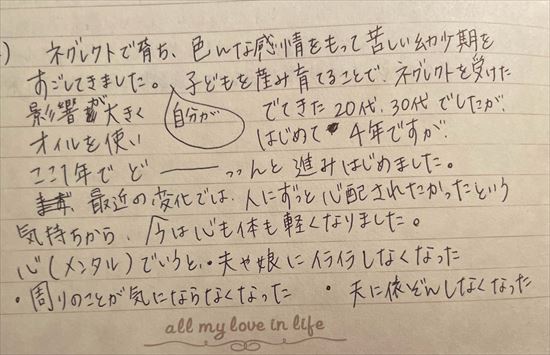 ) ネグレクトで育ち、色んな感情をもって苦しい幼少期を
すごしてきました。子どもを産み育てることで、ネグレクトを受けた
影響が大きく 自分が でてきた20代、30代でしたが、
オイルを使い はじめて 4年ですが
ここ1年で ど――っっんと進みはじめました。
最近の変化では、人にずっと心配されたかったという
気持ちから、今は心も体も軽くなりました。
心(メンタル)でいうと、・夫や娘にイライラしなくなった
・周りのことが気にならなくなった ・夫に依ぞんしなくなった
all my love in life